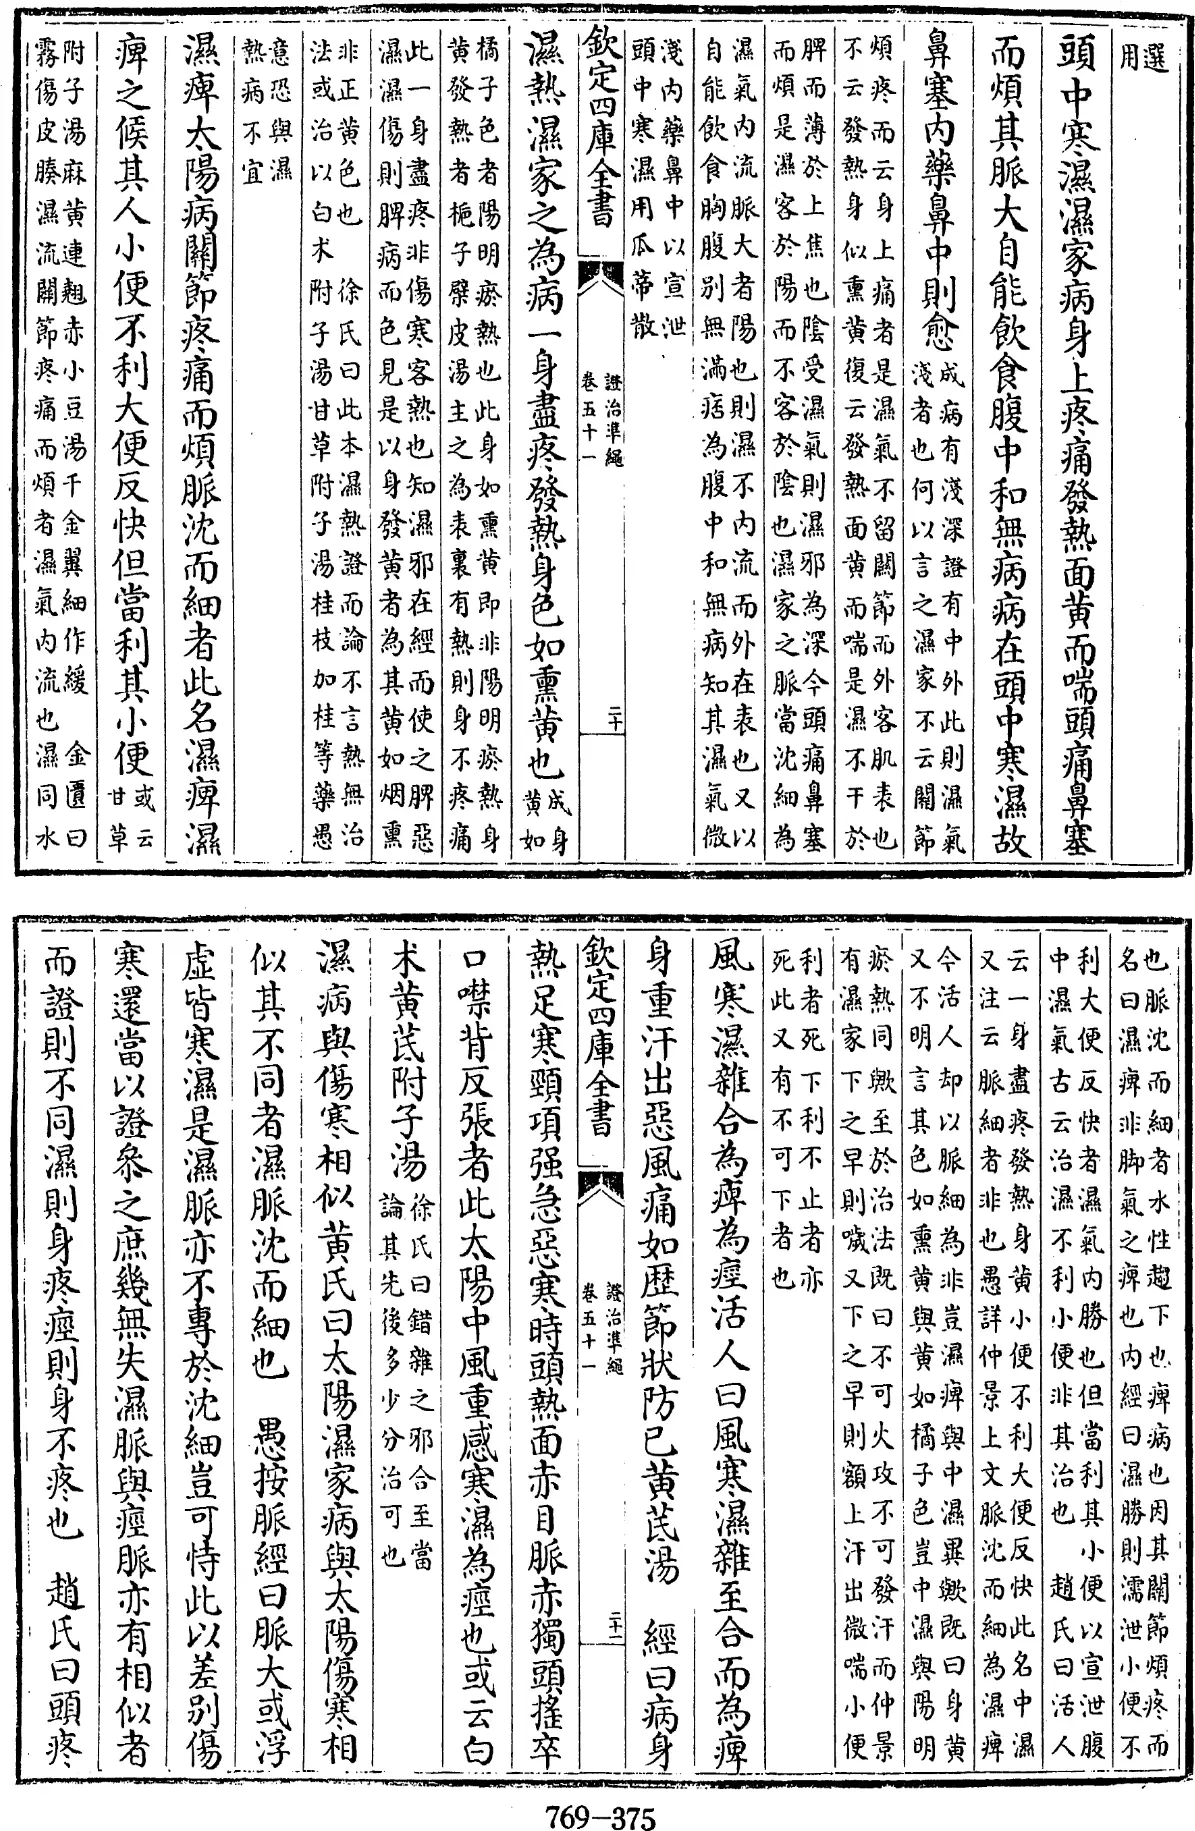 選
用
頭中寒濕濕家病身上疼痛發熱面黄而喘頭痛鼻塞
而煩其脈大自能飲食腹中和無病病在頭中寒濕故
鼻塞内藥鼻中則愈
成病有淺深證有中外此則濕氣
淺者也何以言之濕家不云關節
煩疼而云身上痛者是濕氣不留關節而外客肌表也
不云發熱身似熏黄復云發熱面黄而喘是濕不干於
脾而薄於上焦也陰受濕氣則濕邪為深今頭痛鼻塞
而煩是濕客於陽而不客於陰也濕家之脈當沈細為
濕氣内流脈大者陽也則濕不内流而外在表也又以
自能飲食胸腹别無滿痞為腹中和無病知其濕氣微
淺内藥鼻中以宣泄
頭中寒濕用瓜蒂散
欽定四庫全書
證治準繩
卷五十一
二十
濕熱濕家之為病一身盡疼發熱身色如熏黄也
成身
黄如
橘子色者陽明瘀熱也此身如熏黄即非陽明瘀熱身
黄發熱者梔子檗皮湯主之為表裏有熱則身不疼痛
此一身盡疼非傷寒客熱也知濕邪在經而使之脾惡
濕濕傷則脾病而色見是以身發黄者為其黄如烟熏
非正黄色也 徐氏曰此本濕熱證而論不言熱無治
法或治以白术附子湯甘草附子湯桂枝加桂等藥愚
意恐與濕
熱病不宜
濕痺太陽病關節疼痛而煩脈沈而細者此名濕痺濕
痺之候其人小便不利大便反快但當利其小便
或云
甘草
附子湯麻黄連翹赤小豆湯千金翼細作緩 金匱曰
霧傷皮腠濕流關節疼痛而煩者濕氣内流也濕同水
也脈沈而細者水性趨下也痺病也因其關節煩疼而
名曰濕痺非脚氣之痺也内經曰濕勝則濡泄小便不
利大便反快者濕氣内勝也但當利其小便以宣泄腹
中濕氣古云治濕不利小便非其治也 趙氏曰活人
云一身盡疼發熱身黄小便不利大便反快此名中濕
又注云脈細者非也愚詳仲景上文脈沈而細為濕痺
今活人却以脈細為非豈濕痺與中濕異歟既曰身黄
又不明言其色如熏黄與黄如橘子色豈中濕與陽明
瘀熱同歟至於治法既曰不可火攻不可發汗而仲景
有濕家下之早則噦又下之早則額上汗出微喘小便
利者死下利不止者亦
死此又有不可下者也
風寒濕雜合為痺為痙活人曰風寒濕雜至合而為痺
身重汗出惡風痛如歷節狀防已黄芪湯 經曰病身
欽定四庫全書
證治準繩
卷五十一
二十一
熱足寒頸項强急惡寒時頭熱面赤目脈赤獨頭搖卒
口噤背反張者此太陽中風重感寒濕為痙也或云白
术黄芪附子湯
徐氏曰錯雜之邪合至當
論其先後多少分治可也
濕病與傷寒相似黄氏曰太陽濕家病與太陽傷寒相
似其不同者濕脈沈而細也 愚按脈經曰脈大或浮
虚皆寒濕是濕脈亦不專於沈細豈可恃此以差别傷
寒還當以證參之庶幾無失濕脈與痙脈亦有相似者
而證則不同濕則身疼痙則身不疼也 趙氏曰頭疼
769-375